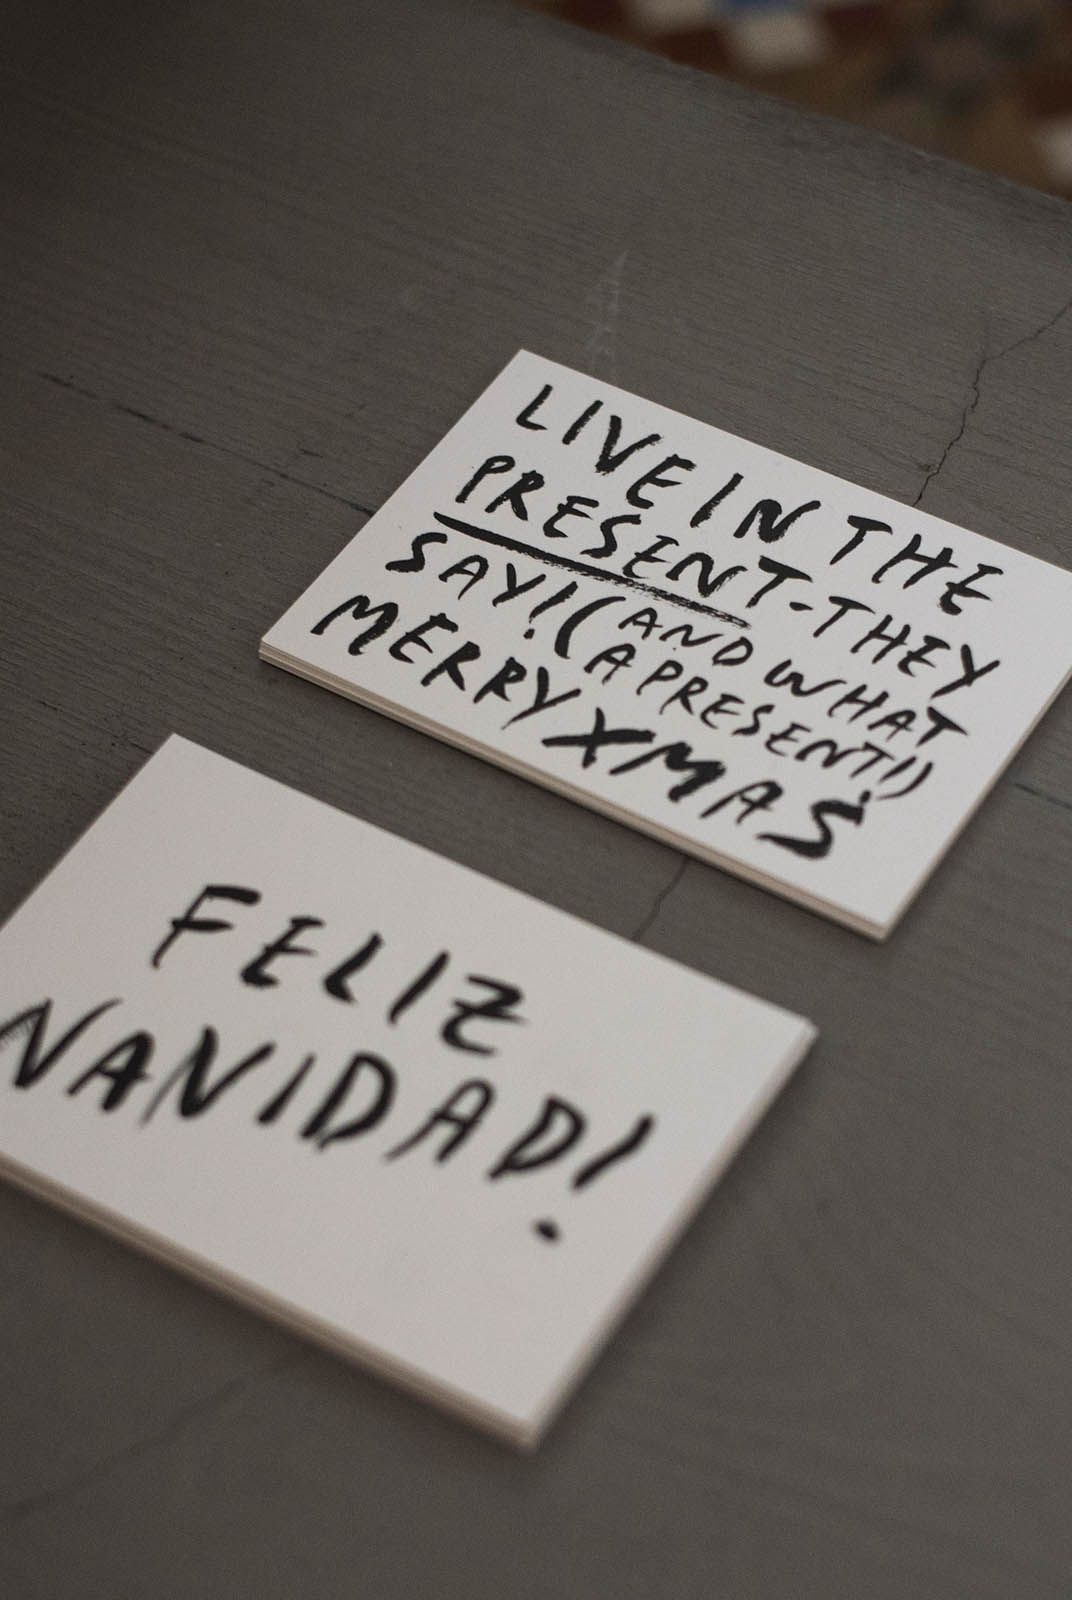 LIVE IN THE
PRESENT-THEY
SAY! (AND WHAT
A PRESENT!!)
MERRY XMAS
FELIZ
NAVIDAD!